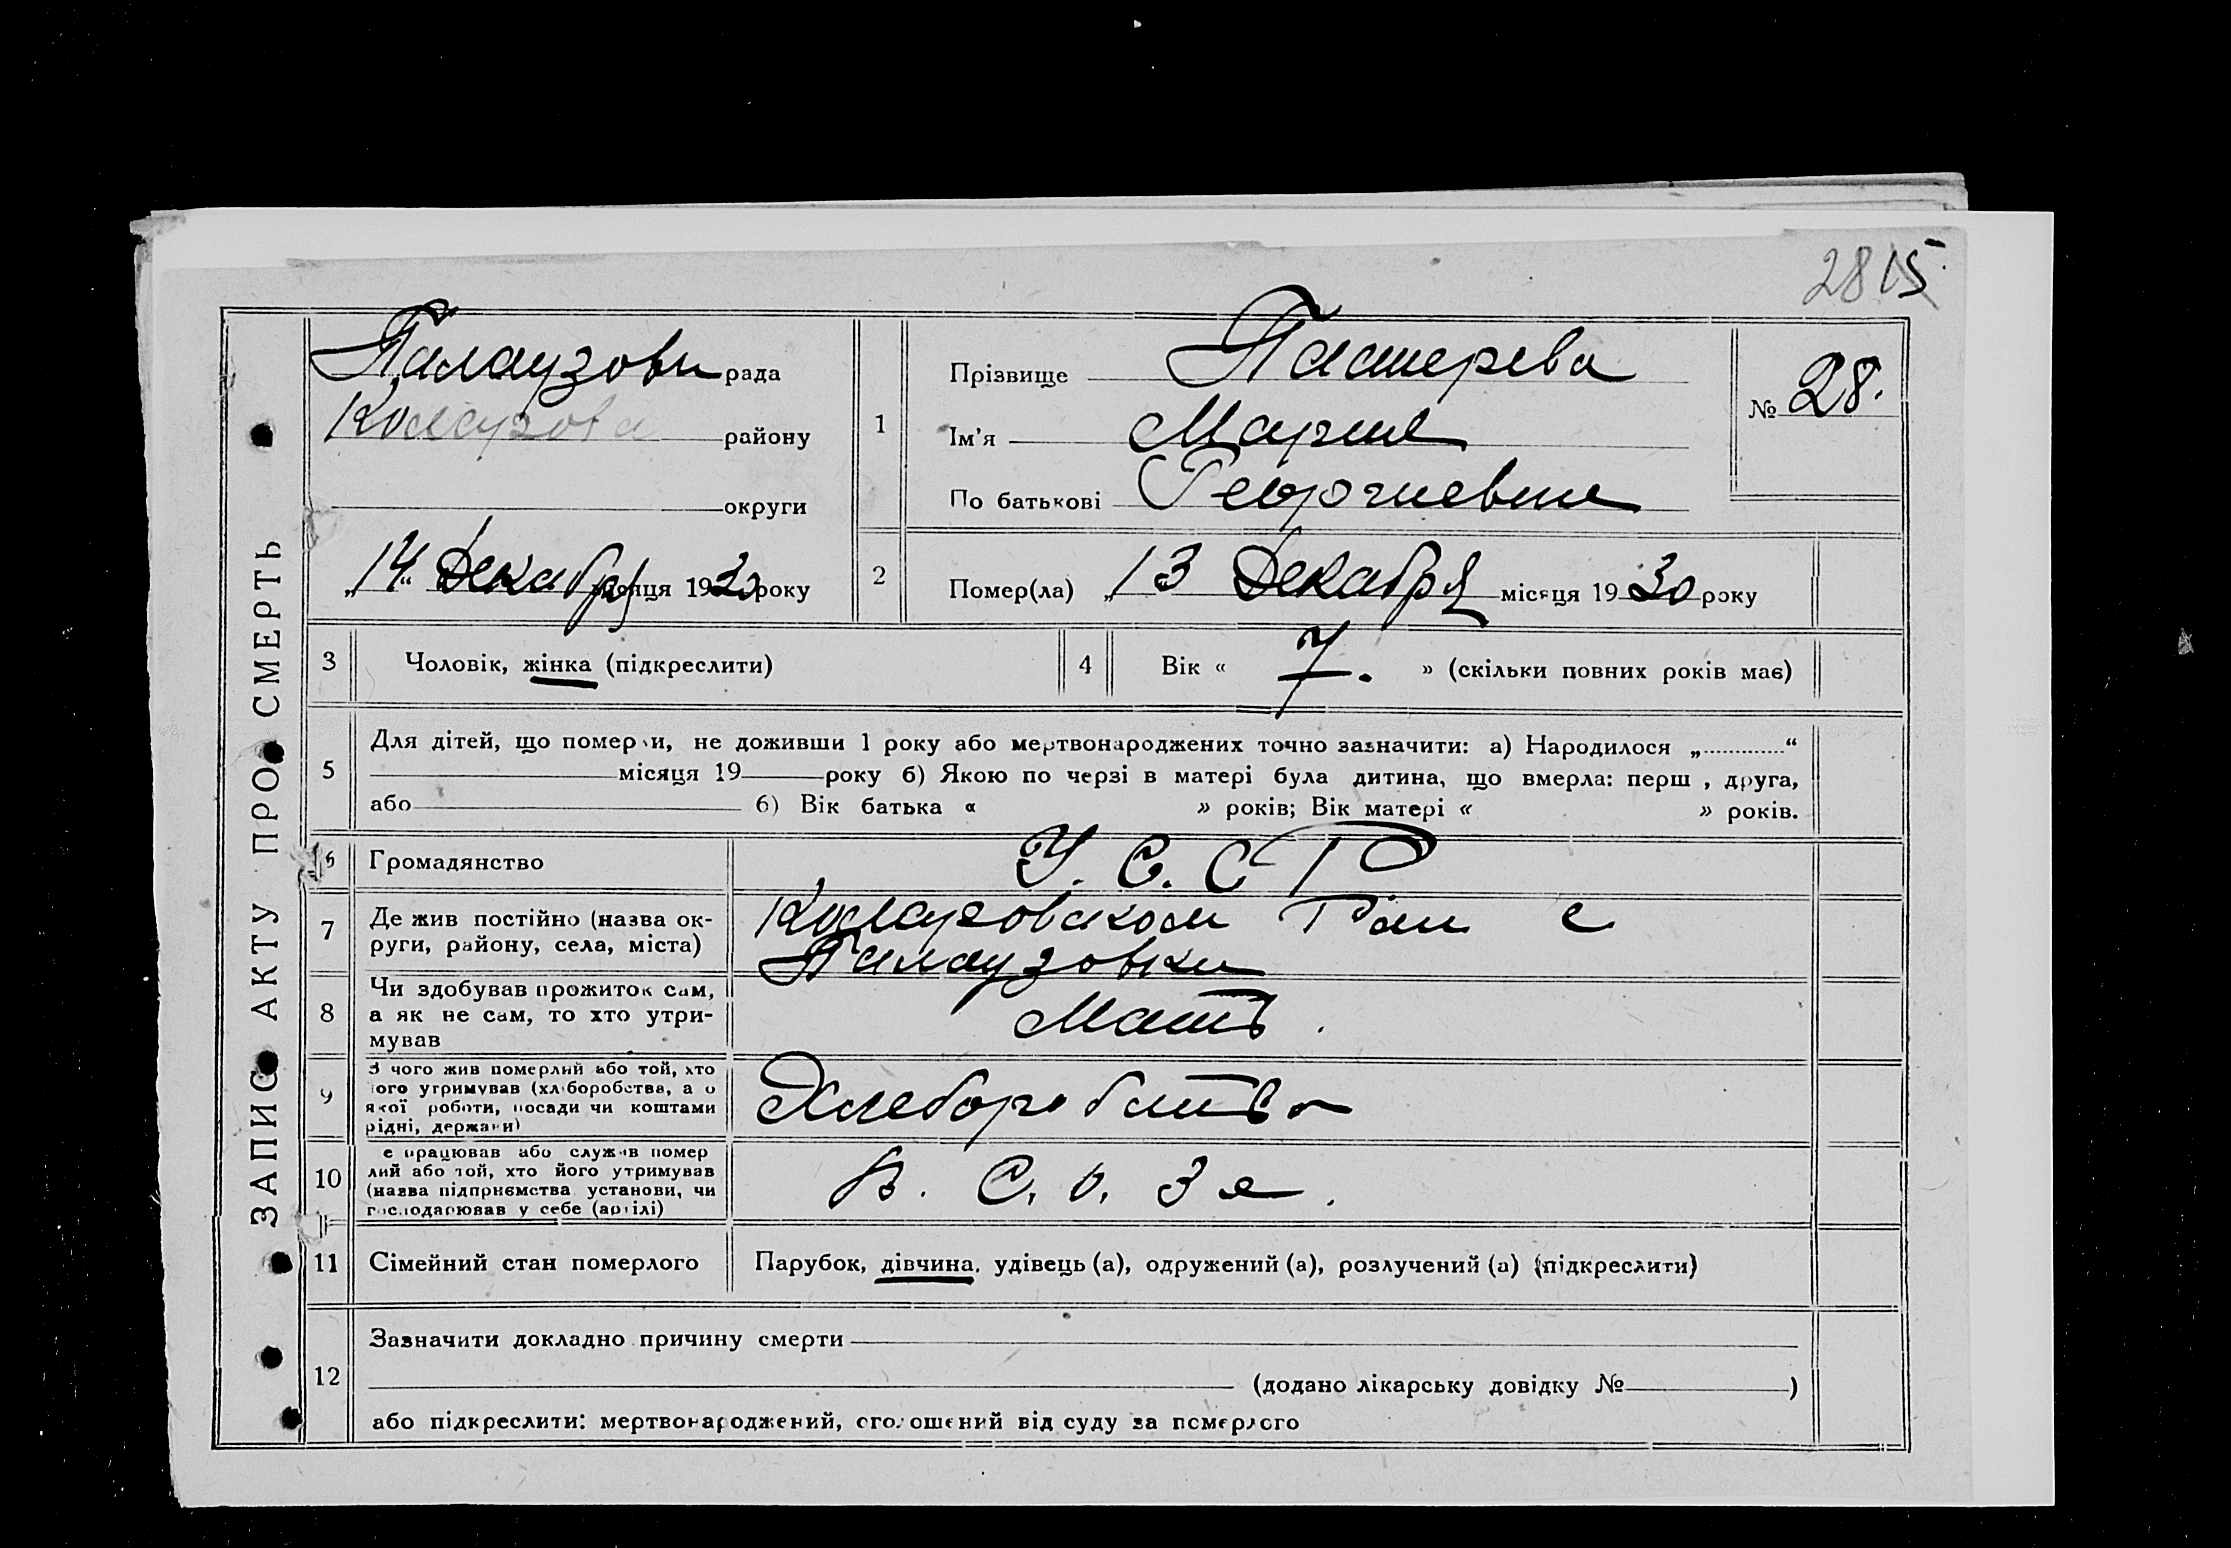 2815
ЗАПИС АКТУ ПРО СМЕРТЬ
Палаузови рада
району
округи
„14“ Декабря місяця 1930 року
1
Прізвище Пашерева
Ім'я Мария
По батькові Георгиевна
№ 28.
2
Помер(ла) „13 Декабря місяця 1930 року
3
Чоловік, жінка (підкреслити)
4
Вік « 7. » (скільки повних років має)
5
Для дітей, що померли, не доживши 1 року або мертвонароджених точно зазначити: а) Народилося „............“
місяця 19 року б) Якою по черзі в матері була дитина, що вмерла: перш , друга,
або б) Вік батька « » років; Вік матері « » років.
6
Громадянство
У. С. С Р
7
Де жив постійно (назва ок-
руги, району, села, міста)
Рай с
Палаузовки
8
Чи здобував прожиток сам,
а як не сам, то хто утри-
мував
Мать.
9
З чого жив померлий або той, хто
його утримував (хліборобства, а о
якої роботи, посади чи коштами
рідні, держави)
Хлеборобство
10
е працював або служив помер
лий або той, хто його утримував
(назва підприємства установи, чи
господарював у себе (артілі)
В. С. о. З е.
11
Сімейний стан померлого
Парубок, дівчина, удівець (а), одружений (а), розлучений (а) (підкреслити)
12
Зазначити докладно причину смерти
(додано лікарську довідку № )
або підкреслити: мертвонароджений, оголошений від суду за померлого